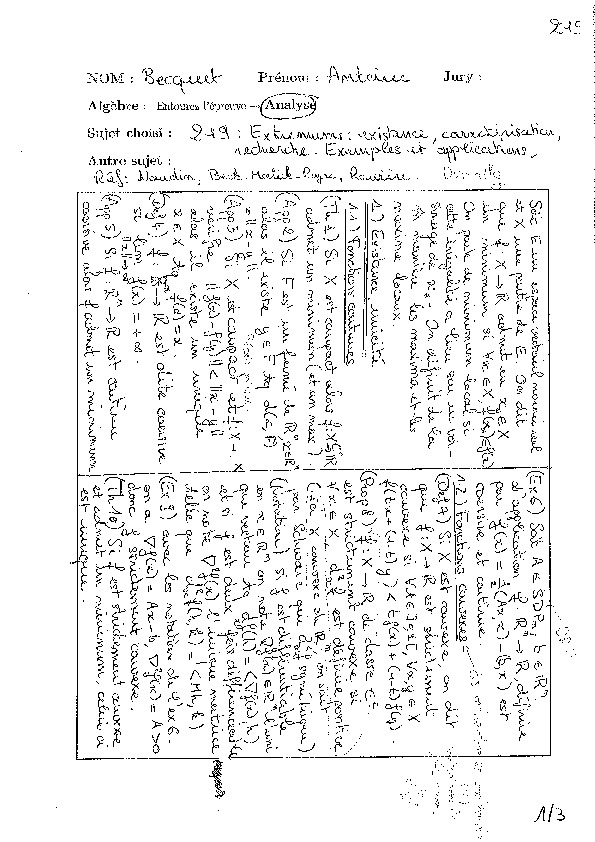 219
NOM : Becquet Prénom : Antoine Jury :
Algèbre : Entourez l'épreuve → Analyse
Sujet choisi : 219 : Extremums : existence, caractérisation,
recherche. Exemples et applications.
Autre sujet :
Réf : Gourdon, Beck Malick Peyré, Rouvière.
Soit E un espace vectoriel normé
et X une partie de E. On dit
que f: X → R admet en x₀ ∈ X
un minimum si ∀x ∈ X f(x₀) ≤ f(x)
On parle de minimum local si
cette inégalité a lieu sur un voi-
sinage de x₀. On définit de la
même manière les maxima et les
maxima locaux.
1.) Existence, unicité
1.1) Fonctions continues
(Th 1) Si X est compact alors f: X → R
admet un minimum (et un max).
(App 2) Si F est un fermé de Rⁿ, x ∈ Rⁿ
alors il existe y ∈ F tq d(x, F)
= ||x - y||.
(App 3) Si X est compact et f: X → X
vérifie ||f(x) - f(y)|| < ||x - y||
alors il existe un unique
x ∈ X tq f(x) = x.
(Def 4) f: Rⁿ → R est dite coercive
si lim f(x) = +∞.
||x|| → ∞
(App 5) Si f: Rⁿ → R est continue
coercive alors f admet un minimum
(Ex 6) Soit A ∈ SDPₙ, b ∈ Rⁿ.
L'application f: Rⁿ → R définie
par f(x) = ½(Ax, x) - (b, x) est
coercive et continue.
1.2) Fonctions convexes
(Def 7) Si X est convexe, on dit
que f: X → R est strictement
convexe si ∀t ∈ ]0,1[, ∀x, y ∈ X
f(tx + (1-t)y) < tf(x) + (1-t)f(y).
(Prop 8) f: X → R de classe C²
est strictement convexe si
∀x ∈ X, d²f est définie positive
(si X convexe de Rⁿ, on sait
par Schwarz que d²f est symétrique)
(Notation) si f est différentiable
en x ∈ Rⁿ on note ∇f(x) ∈ Rⁿ l'uni
que vecteur tq df(h) = (∇f(x), h)
et si f est deux fois différentiable
on note ∇²f(x) l'unique matrice
telle que d²f(h, k) = (Mh, k)
(Ex 9) avec les notations de l'ex 6.
on a ∇f(x) = Ax - b, ∇²f(x) = A > 0
donc f strictement convexe.
(Th 10) Si f est strictement convexe
et admet un minimum, celui-ci
est unique.
1/3